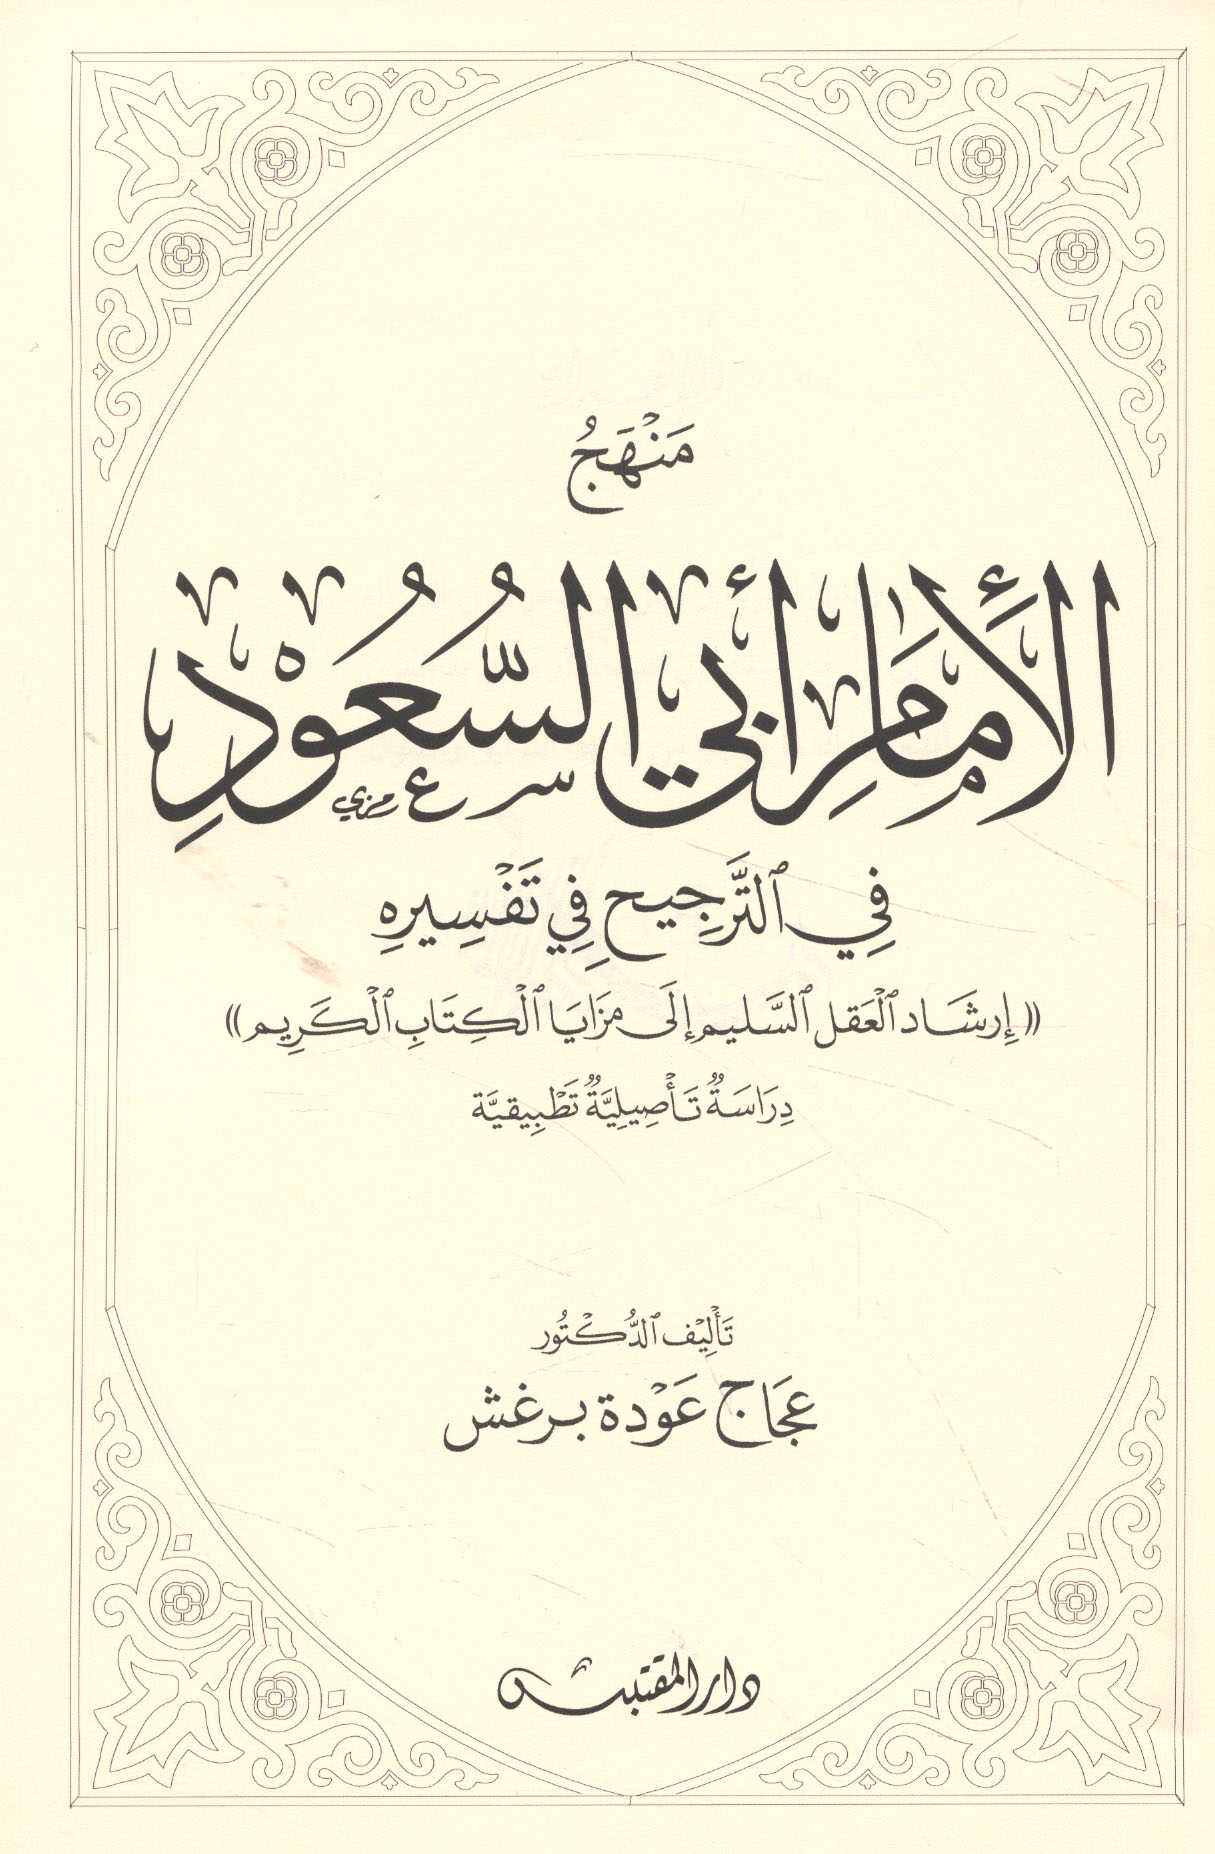 مَنْهَجُ
الإِمَامِ أَبِي السُّعُوْدِ
فِي ٱلتَّرجِيحِ فِي تَفْسِيرِهِ
((إِرشَاد ٱلْعَقل ٱلسَّليم إِلَى مزَايَا ٱلْكِتَابِ ٱلْكَرِيم))
دِرَاسَةٌ تَأْصِيلِيَّةٌ تَطْبِيقيَّة
تَأْلِيْف ٱلدُّكْتُور
عجَاج عَوْدة برغش
دار المقتبس